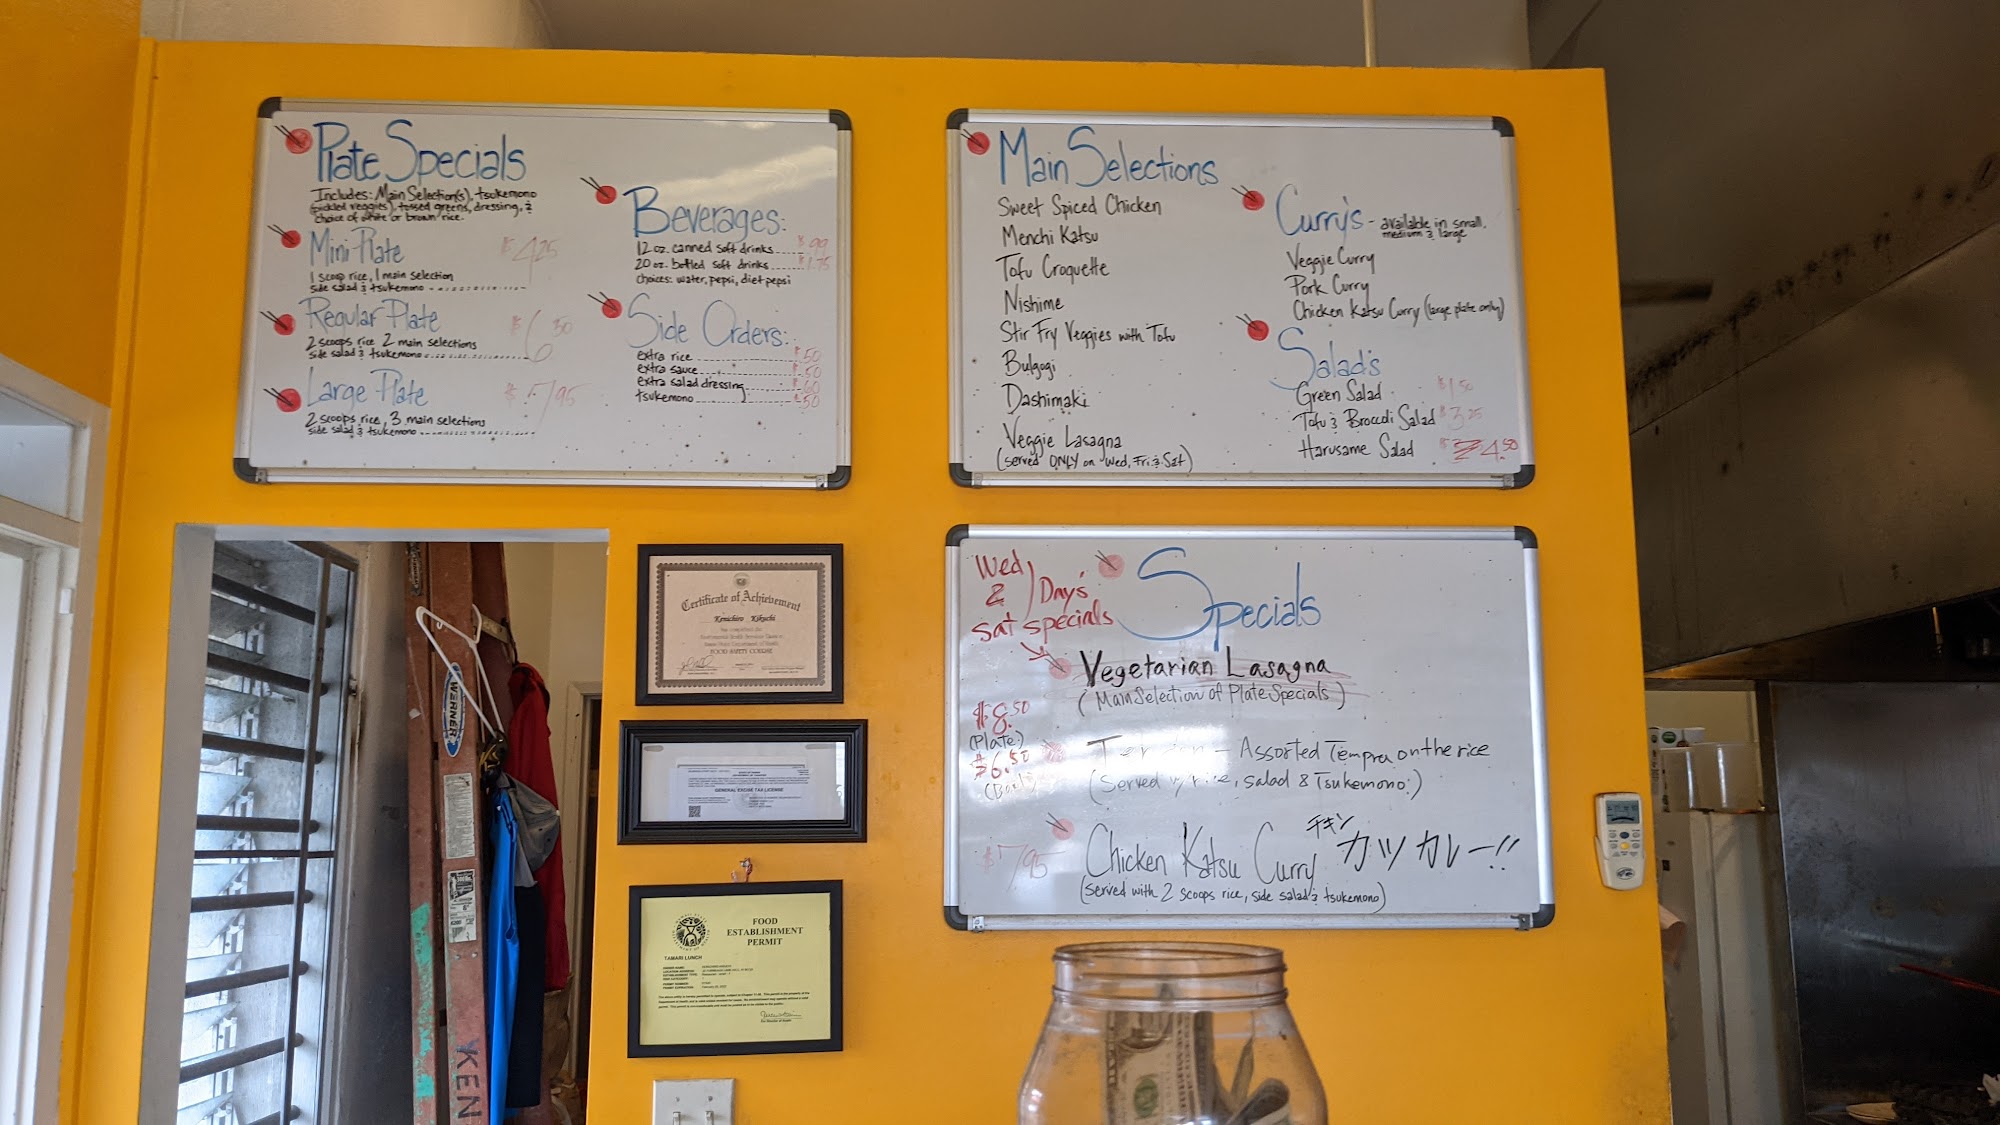 Plate Specials
Includes: Main Selection(s), tsukemono
(pickled veggies), tossed greens, dressing, &
choice of white or brown rice.
Mini Plate $4.25
1 scoop rice, 1 main selection
side salad & tsukemono
Regular Plate $6.50
2 scoops rice 2 main selections
side salad & tsukemono
Large Plate $7.95
2 scoops rice, 3 main selections
side salad & tsukemono
Beverages:
12 oz. canned soft drinks $.99
20 oz. bottled soft drinks $1.75
choices: water, pepsi, diet pepsi
Side Orders:
extra rice $.50
extra sauce $.50
extra salad dressing $.60
tsukemono $.50
Main Selections
Sweet Spiced Chicken
Menchi Katsu
Tofu Croquette
Nishime
Stir Fry Veggies with Tofu
Bulgogi
Dashimaki
Veggie Lasagna
(served ONLY on Wed, Fri & Sat)
Curry's - available in small,
medium & large
Veggie Curry
Pork Curry
Chicken Katsu Curry (large plate only)
Salad's
Green Salad $1.50
Tofu & Broccoli Salad $3.25
Harusame Salad $4.50
Wed
&
Sat
Day's
specials
Specials
Vegetarian Lasagna
(Main Selection of Plate Specials)
$8.50
(Plate)
$6.50
(Bowl)
- Assorted Tempra on the rice
(Served w/ rice, salad & Tsukemono.)
$7.95
Chicken Katsu Curry チキンカツカレー!!
(served with 2 scoops rice, side salad & tsukemono)
Certificate of Achievement
Kenichiro Kikuchi
FOOD SAFETY COURSE
GENERAL EXCISE TAX LICENSE
FOOD
ESTABLISHMENT
PERMIT
TAMARI LUNCH
WERNER
KEN